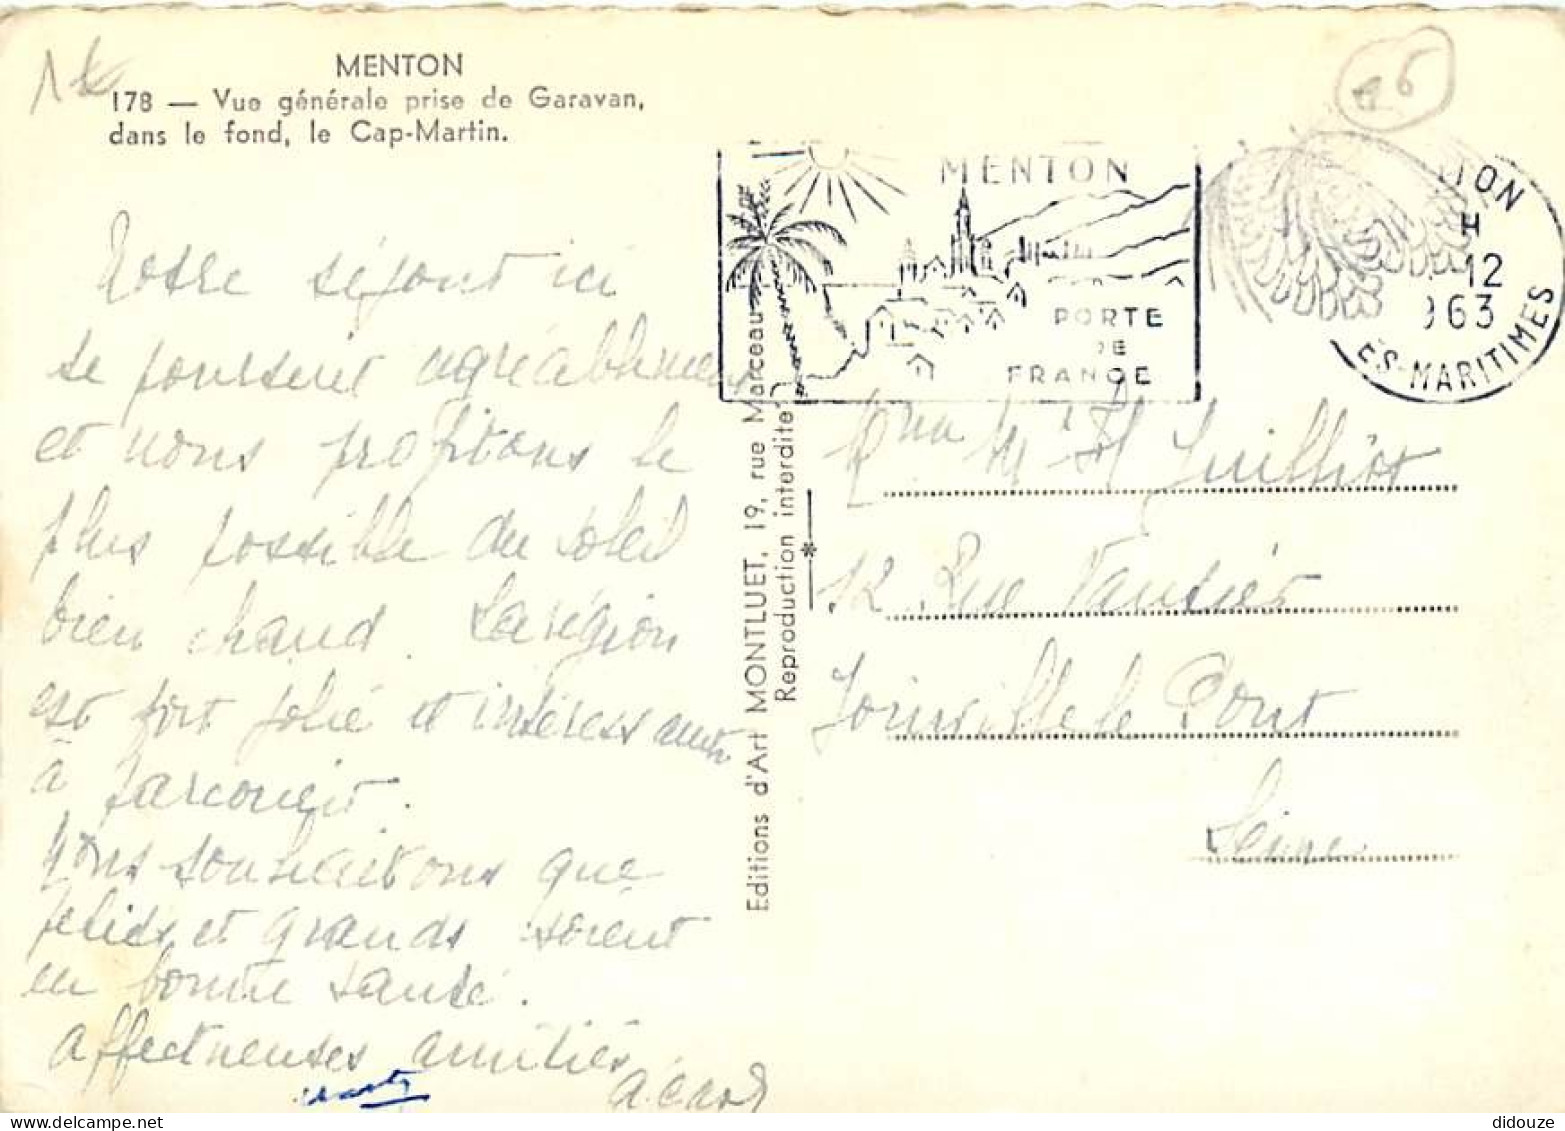 MENTON
178 — Vue générale prise de Garavan,
dans le fond, le Cap-Martin.
Notre séjour ici
se poursuit agréablement
et nous profitons le
plus possible du soleil
bien chaud. La région
est fort jolie et intéressante
à parcourir.
Nous souhaitons que
petits et grands soient
en bonne santé.
Affectueuses amitiés
Editions d'Art MONTLUET, 19, rue Marceau
Reproduction interdite
MENTON
PORTE
DE
FRANCE
TON
H
12
963
ES-MARITIMES
Juilliot
12 Rue Vautier
Joinville le Pont
Seine
didouze